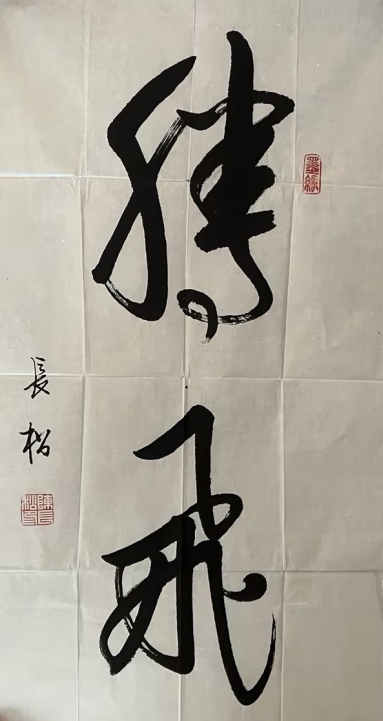 騰飛
長松